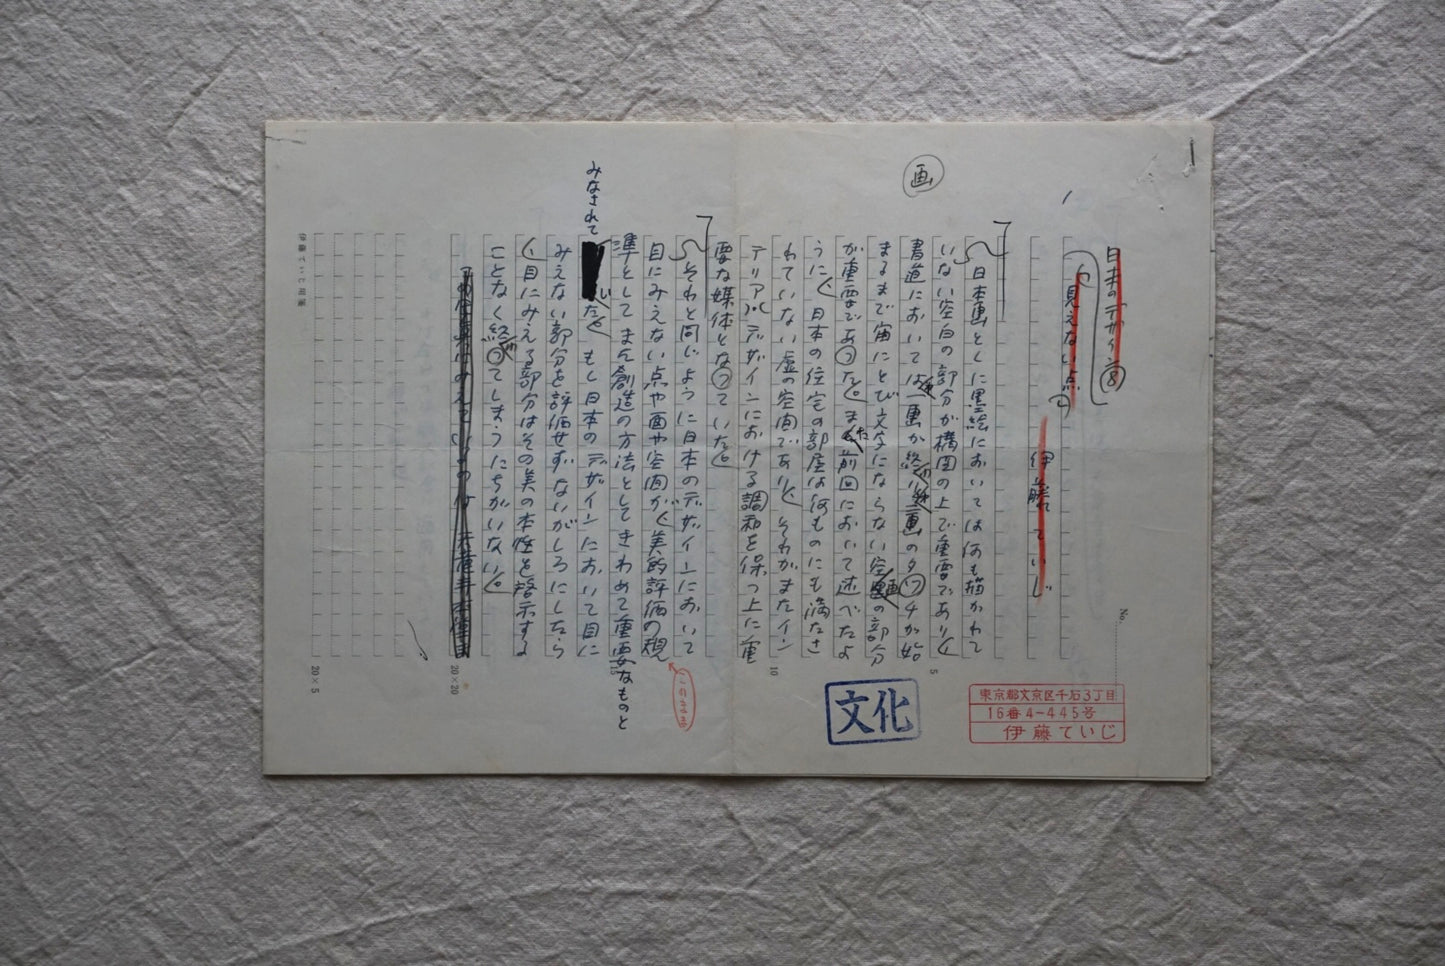 No.
日本のデザイン⑧
見えない点
伊藤ていじ
画
日本画とくに墨絵においては何も描かれて
いない空白の部分が構図の上で重要であり、
書道においては一画が終り、画のタッチが始
まるまで宙にとび文字にならない空画の部分
が重要であった。また前回において述べたよ
うに、日本の住宅の部屋は何ものにも満たさ
れていない虚の空間であり、それがまたイン
テリアデザインにおける調和を保つ上に重
要な媒体となっていた。
それと同じように日本のデザインにおいて
目にみえない点や面や空間が、美的評価の規
準として また創造の方法としてきわめて重要なものと
みなされて
た。もし日本のデザインにおいて目に
みえない部分を評価せずないがしろにしたら
、目にみえる部分はその美の本性を啓示する
ことなく終ってしまうにちがいない。
5
10
20×20
20×5
伊藤ていじ用箋
文化
東京都文京区千石3丁目
16番4-445号
伊藤ていじ